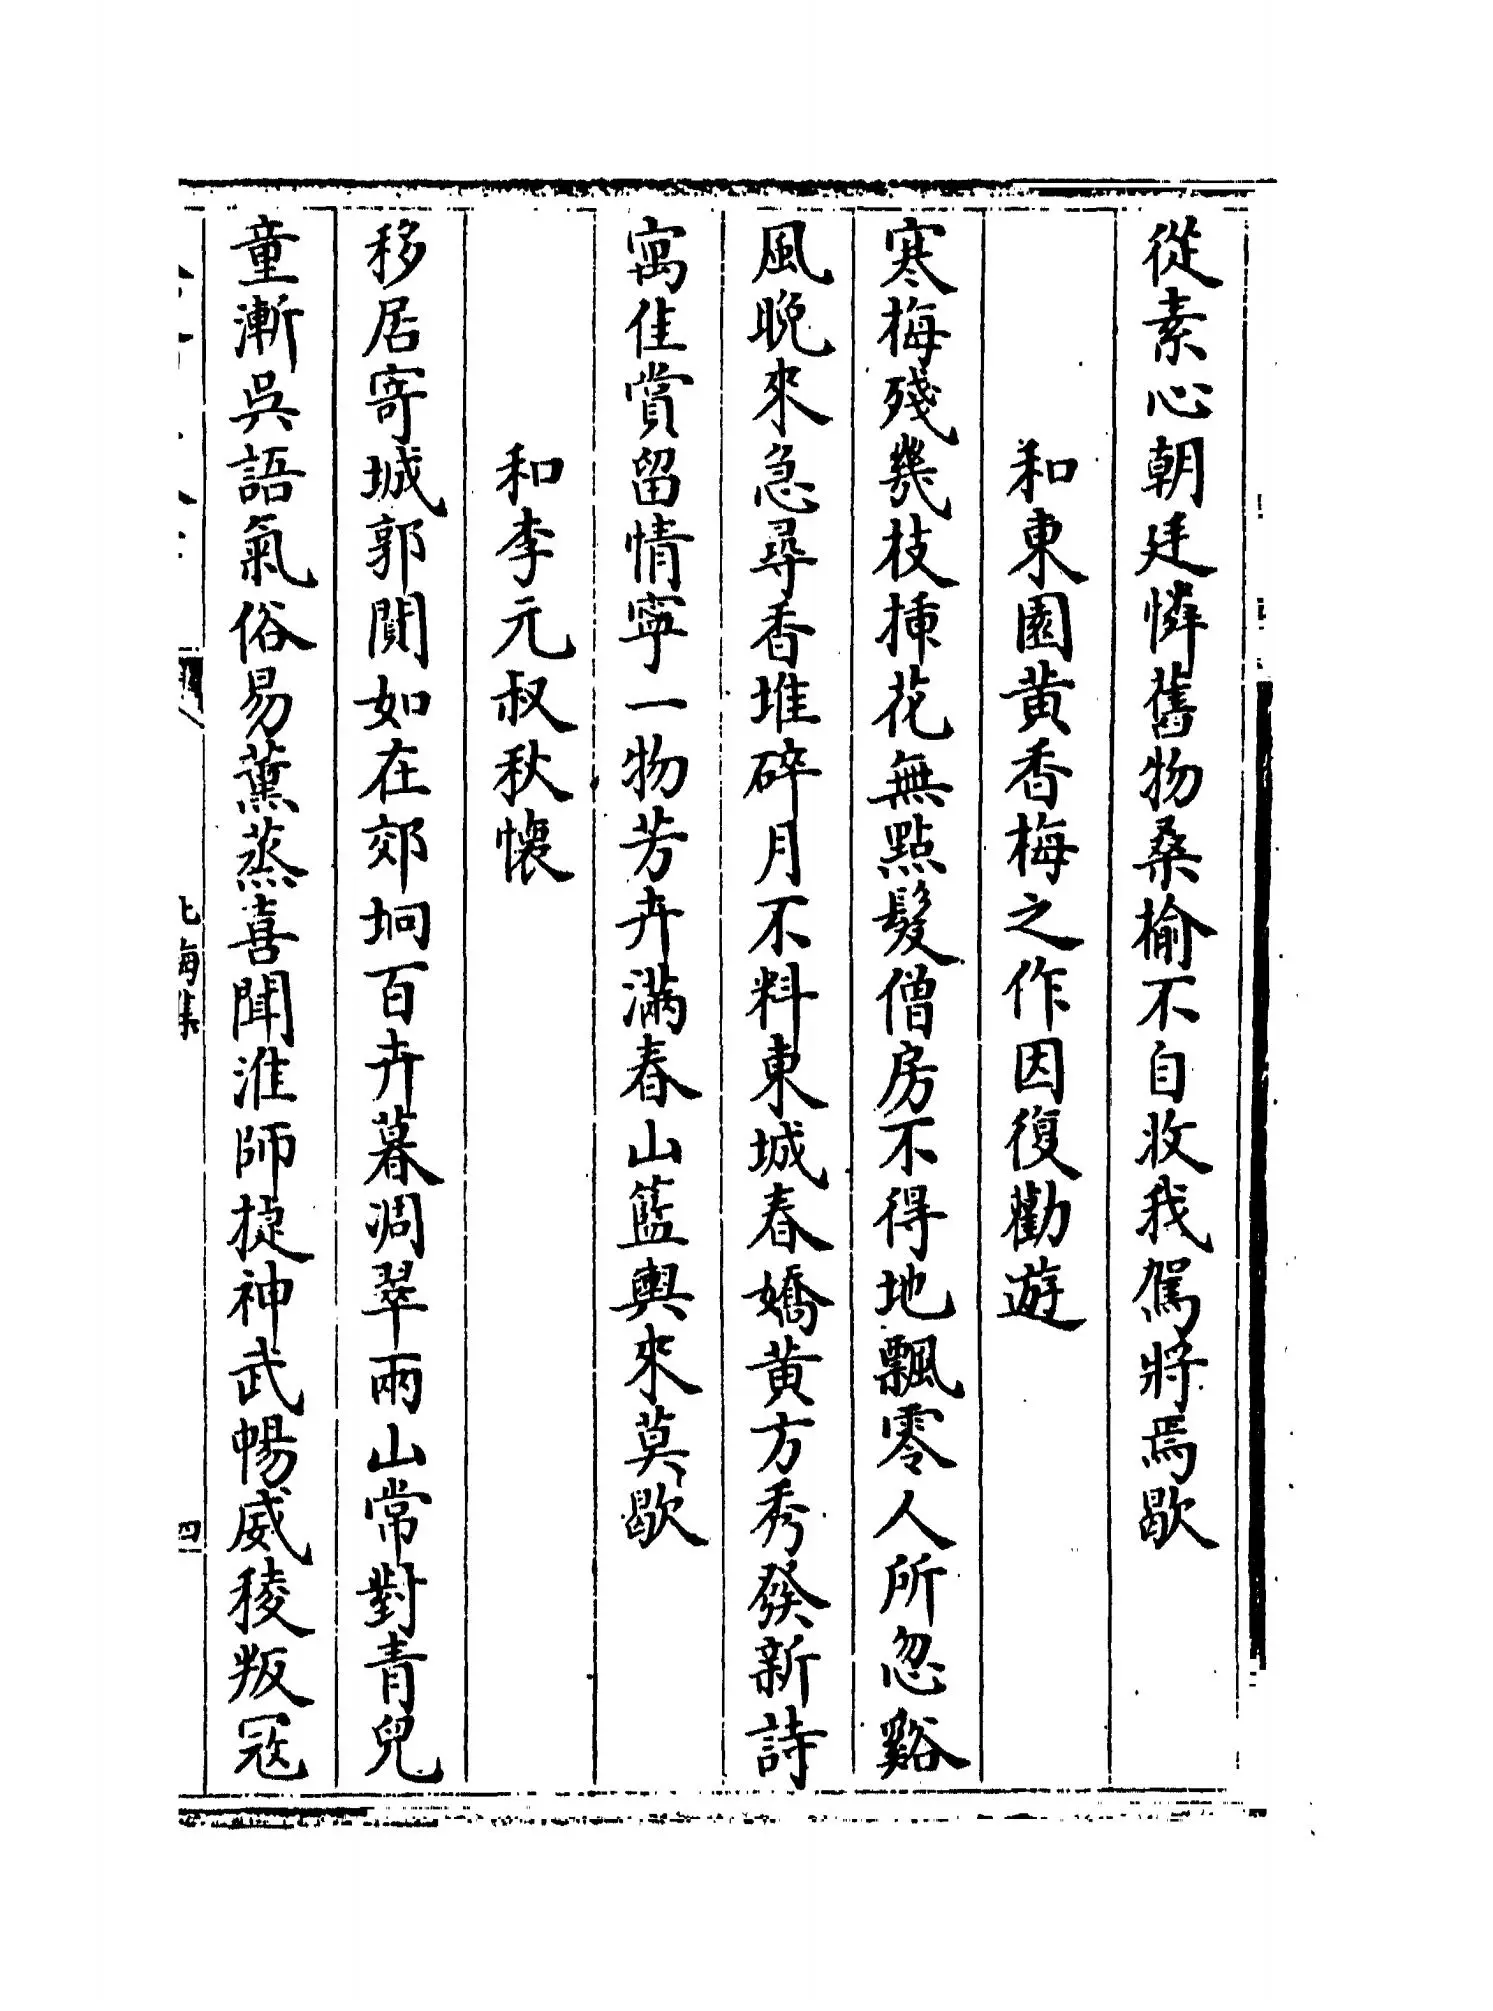 從素心朝廷憐舊物桑榆不自收我駕將焉歇
和東園黄香梅之作因復勸遊
寒梅殘幾枝揷花無㸃髮僧房不得地飄零人所忽谿
風晩來急尋香堆碎月不料東城春嬌黄方秀發新詩
寓佳賞留情寧一物芳卉滿春山籃輿來莫歇
和李元叔秋懷
移居寄城郭閴如在郊坰百卉暮凋翠兩山常對青兒
童漸吳語氣俗易薰蒸喜聞淮師捷神武暢威稜叛冦
北海集
四